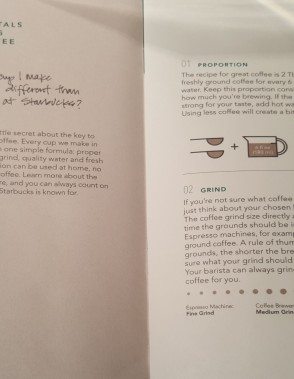 TALS
FEE
cup I make
different than
at Starbucks?
ttle secret about the key to
offee. Every cup we make in
n one simple formula: proper
grind, quality water and fresh
ion can be used at home, no
offee. Learn more about the
re, and you can always count on
Starbucks is known for.
01 PROPORTION
The recipe for great coffee is 2 TB
freshly-ground coffee for every 6
water. Keep this proportion cons
how much you're brewing. If the
strong for your taste, add hot wa
Using less coffee will create a bit
+
6 fl oz
(180 ml)
02 GRIND
If you're not sure what coffee
just think about your chosen
The coffee grind size directly a
time the grounds should be i
Espresso machines, for examp
ground coffee. A rule of thum
grounds, the shorter the bre
sure what your grind should
Your barista can always grin
coffee for you.
Espresso Machine:
Fine Grind
Coffee Brewe
Medium Grin